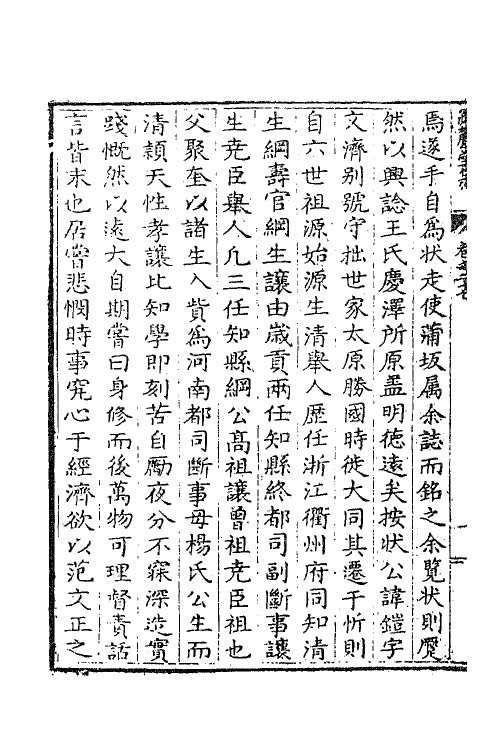 焉遂手自為狀走使蒲坂属余誌而銘之余覽狀則蹷
然以興諗王氏慶澤所原盖明徳遠矣按狀公諱鎧字
文濟别號守拙世家太原勝國時徙大同其遷于忻則
自六世祖源始源生清舉人歷任浙江衢州府同知清
生綱壽官綱生讓由嵗貢兩任知縣終都司副斷事讓
生尭臣舉人凢三任知縣綱公髙祖讓曽祖尭臣祖也
父聚奎以諸生入貲為河南都司斷事母楊氏公生而
清頴天性孝讓比知學即刻苦自勵夜分不寐深造實
踐慨然以遠大自期嘗曰身修而後萬物可理督責話
言皆末也居嘗悲憫時事究心于經濟欲以范文正之